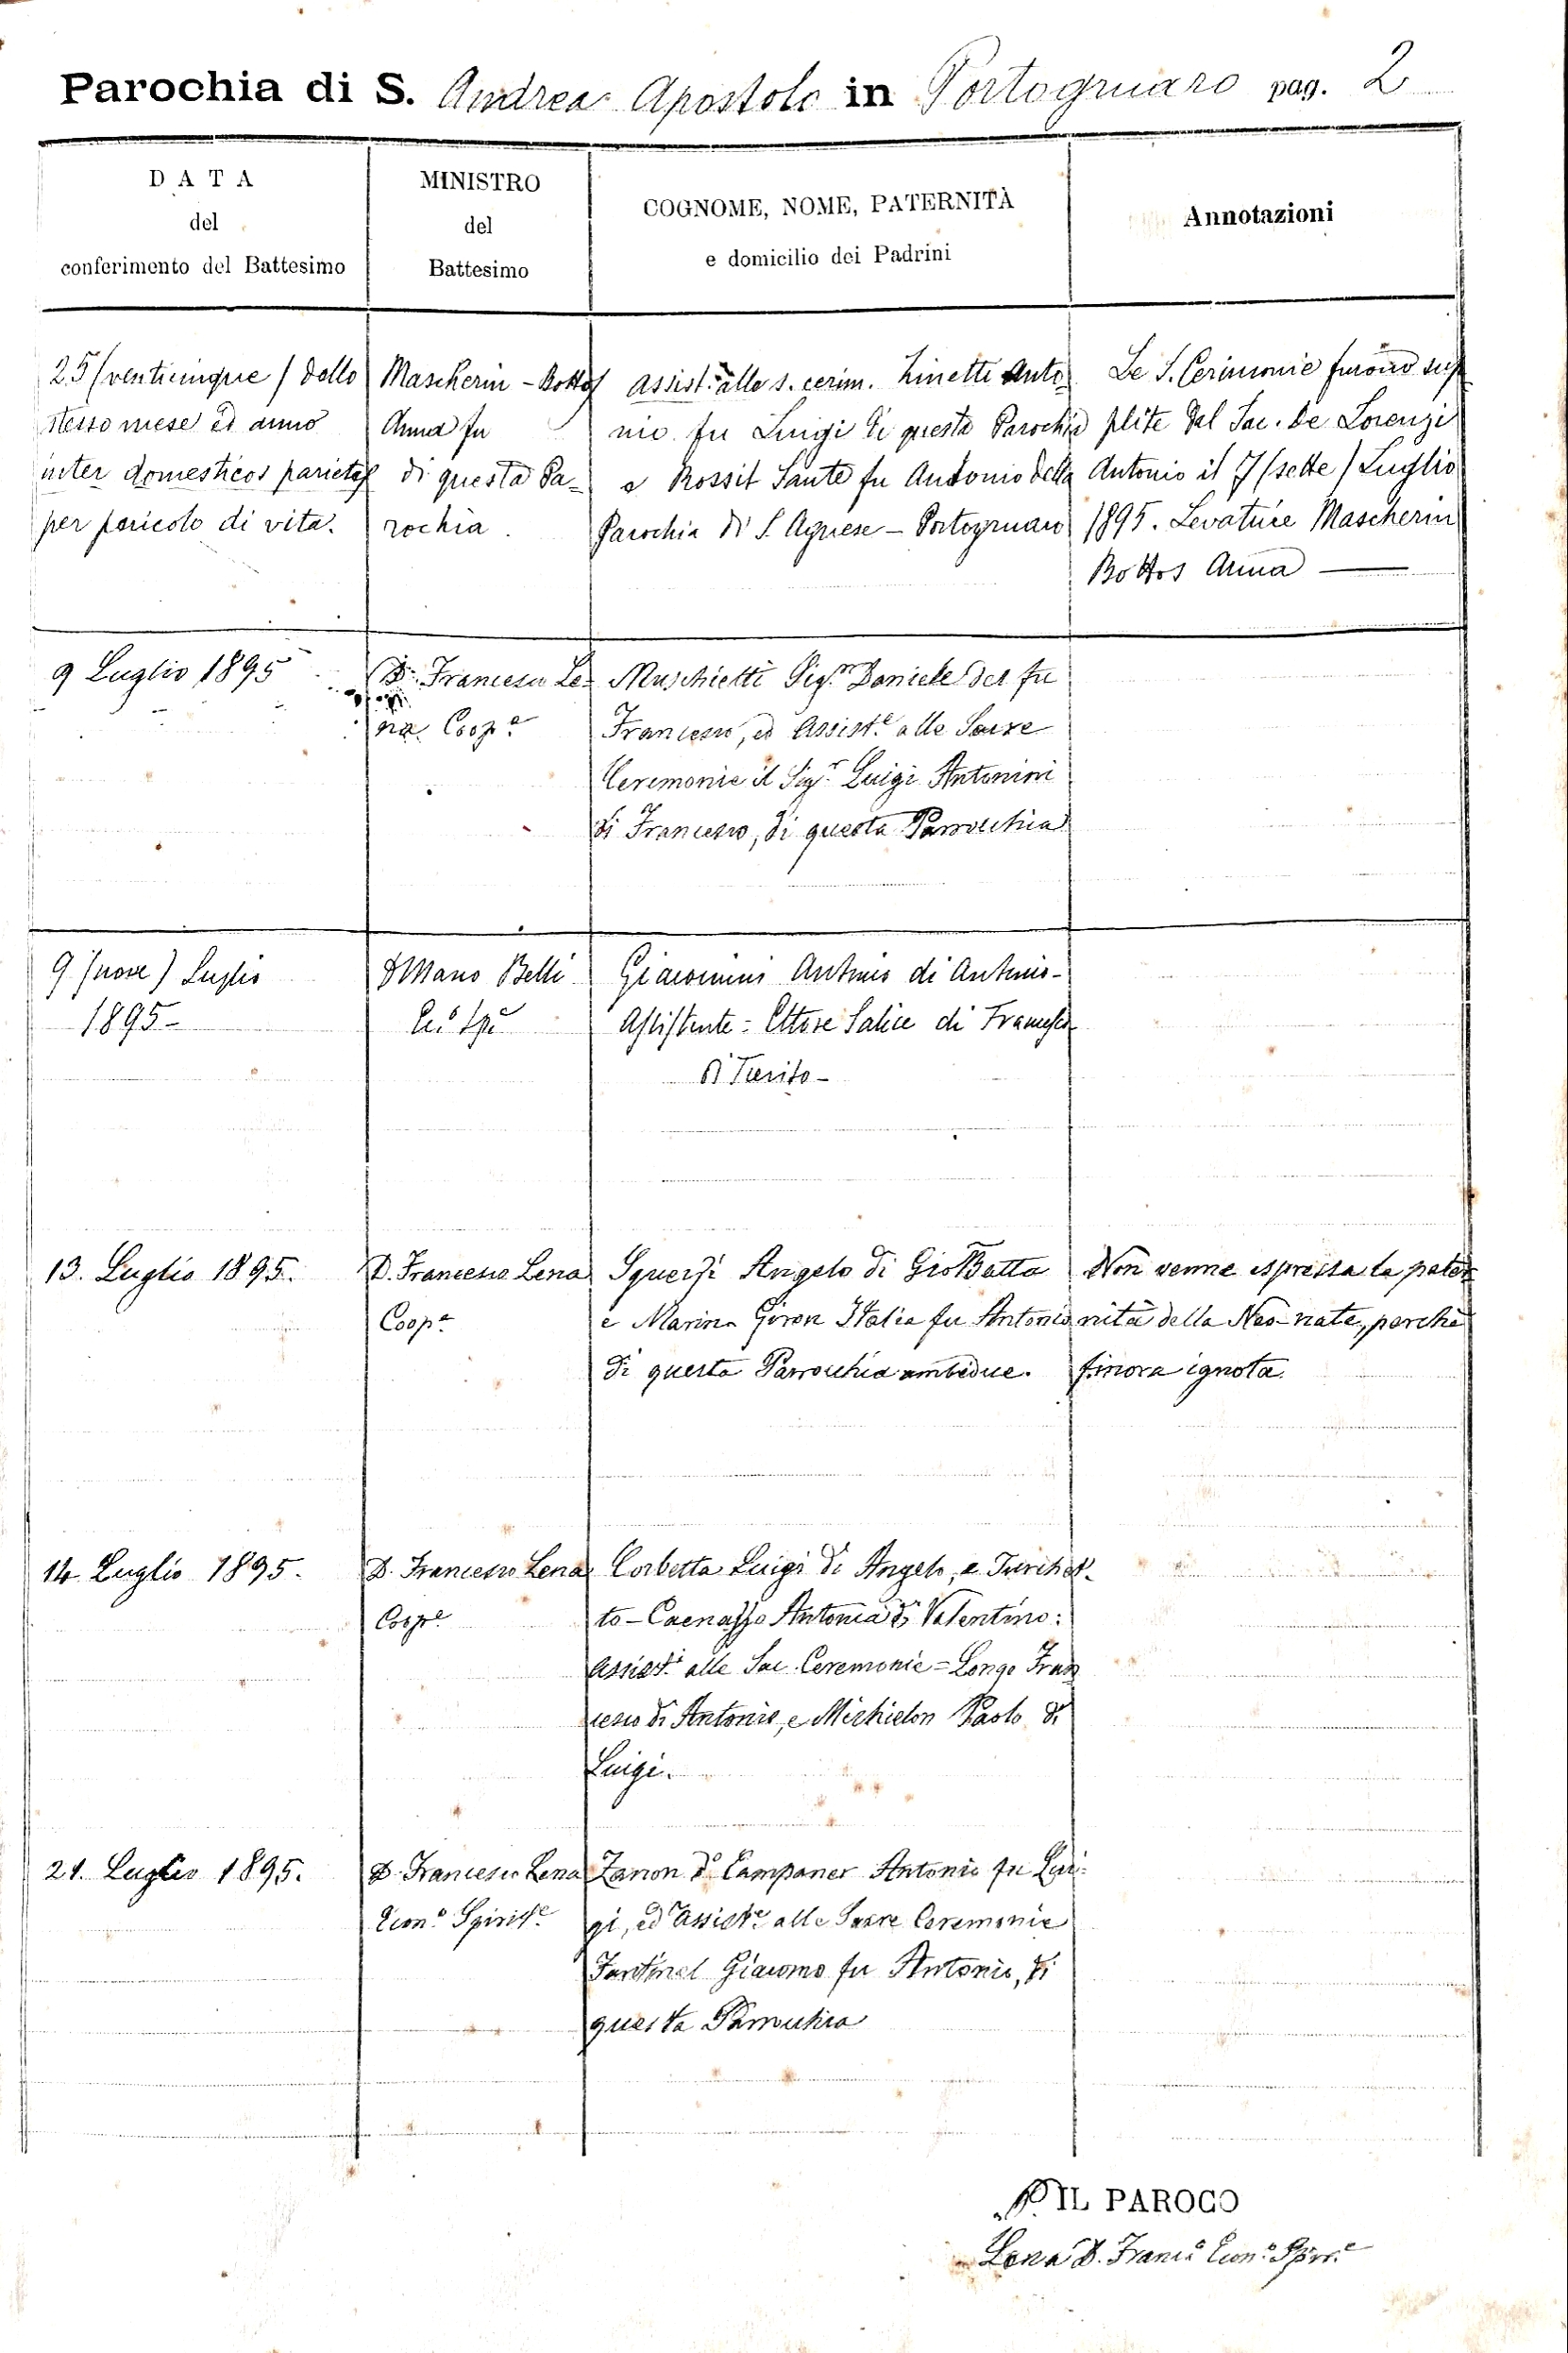 Parochia di S. Andrea Apostolo in Portogruaro pag. 2
DATA
del
conferimento del Battesimo
MINISTRO
del
Battesimo
COGNOME, NOME, PATERNITÀ
e domicilio dei Padrini
Annotazioni
25 (venticinque) dello
stesso mese ed anno
inter domesticos parietes
per pericolo di vita.
Mascherin - Bottos
Anna fu
di questa Pa-
rochia.
assist. alle s. cerim. Zinetti Anto-
nio fu Luigi di questa Parochia
e Rossit Sante fu Antonio della
Parochia di S. Agnese - Portogruaro
Le S. Cerimonie furono sup
plite dal Sac. De Lorenzi
Antonio il 7 (sette) Luglio
1895. Levatrice Mascherin
Bottos Anna
9 Luglio 1895
D. Francesco Le-
na Coop.e
Muschietti Sig.r Daniele del fu
Francesco, ed Assist.e alle Sacre
Ceremonie il Sig.r Luigi Antonini
di Francesco, di questa Parrocchia
9 (nove) Luglio
1895-
Belli
Giacomini Antonio di Antonio-
Assistente = Ettore Salice di Francesco
13. Luglio 1895.
D. Francesco Lena
Coop.e
Squerzi Angelo di GioBatta
e Marin Giron Italia fu Antonio
di questa Parrocchia ambidue.
Non venne espressa la pater
nità della Neo-nata, perchè
finora ignota.
14. Luglio 1895.
D. Francesco Lena
Coop.e
Corbetta Luigi di Angelo, e Turchet-
to - Antonia di Valentino:
Assist.i alle Sac. Ceremonie = Longo Fran
cesco di Antonio, e Michielon Paolo di
Luigi.
21. Luglio 1895.
D. Francesco Lena
Econ.o Spirit.e
Zanon d.o Campaner Antonio fu Lui-
gi, ed Assist.e alle Sacre Ceremonie
Fantinel Giacomo fu Antonio, di
questa Parrocchia
P. IL PAROCO
Lena D. Franc.o Econ.o Spir.e